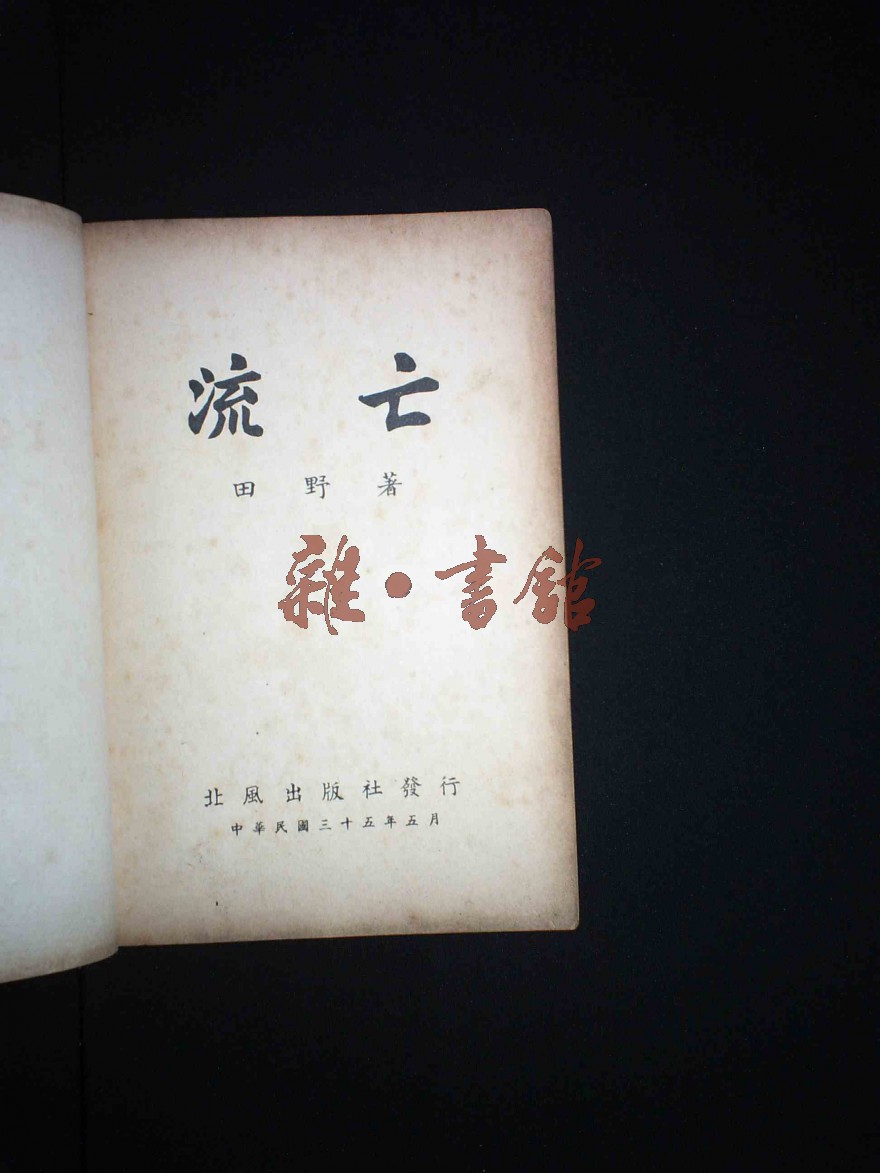 流亡
田野著
雜·書館
北風出版社發行
中華民國三十五年五月